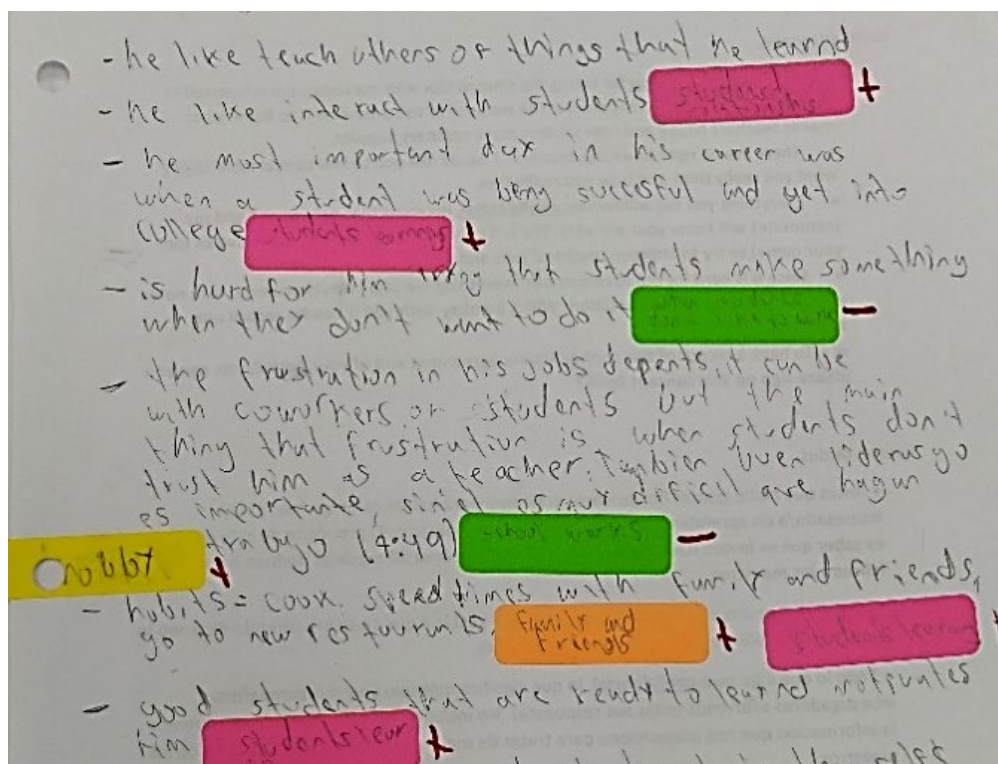 - he like teach others of things that he learnd
- he like interact with students student relationship +
- he most important day in his career was
when a student was being succesful and get into
college students +
- is hard for him that students make something
when they don't want to do it -
- the frustration in his jobs depents, it can be
with coworkers or students but the main
thing that frustration is when students don't
trust him as a teacher. Tambien buen liderasgo
es importante, sin el es muy dificil que hagan
trabajo (4:49) school -
hobby +
- habits = cook, spead times with family and friends,
go to new restaurants, family and friends + students learn +
- good students that are ready to learnd motivates
him students lear +